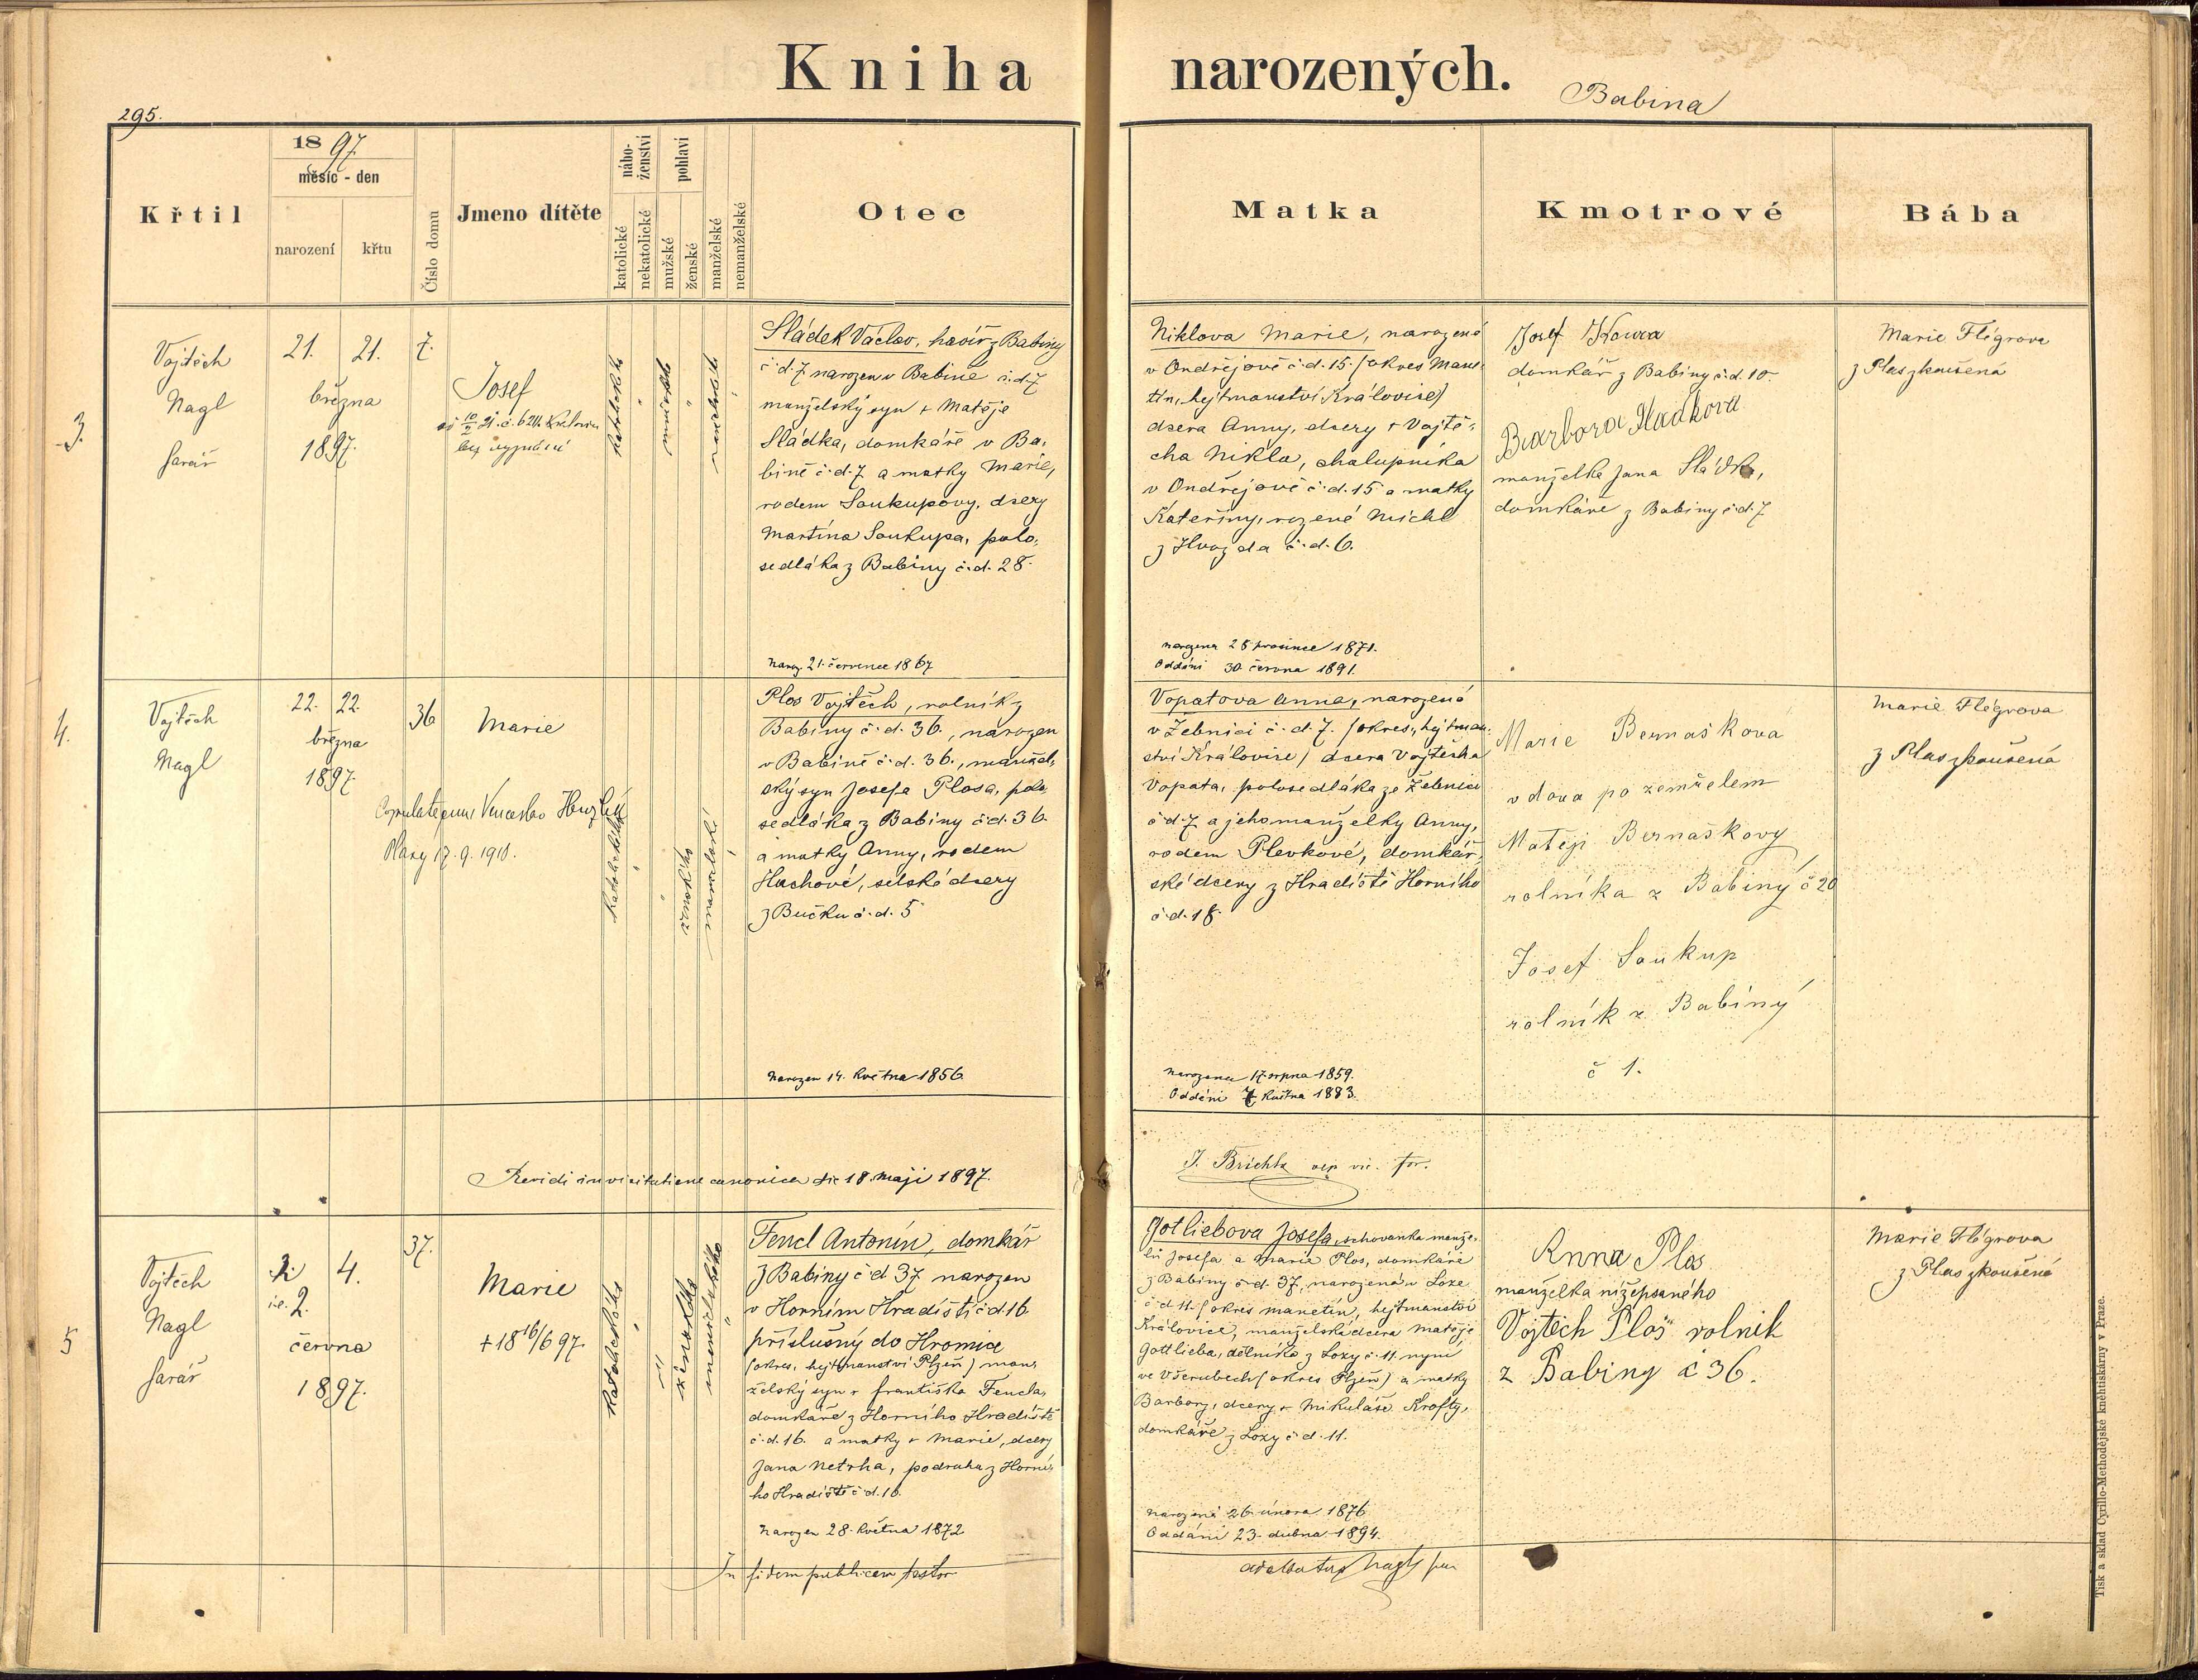 Kniha narozených.
Babina
295.
1897.
měsíc - den
Křtil
narození
křtu
Číslo domu
Jmeno dítěte
nábo-
ženství
katolické
nekatolické
pohlaví
mužské
ženské
manželské
nemanželské
Otec
Matka
Kmotrové
Bába
3.
Vojtěch
Nagl
farář
21. 21.
března
1897.
7.
Josef
Sládek Václav, havíř z Babiny
č.d.7 narozen v Babině č.d.7
manželský syn + Matěje
Sládka, domkáře v Ba-
bině č.d.7 a matky Marie,
rodem Soukupovy, dcery
Martina Soukupa, polo-
sedláka z Babiny č.d. 28.
Naroz. 21. července 1867
Niklova Marie, narozená
v Ondřejově č.d.15. /okres Mane-
tín, hejtmanství Kralovice/
dcera Anny, dcery + Vojtě-
cha Nikla, chalupníka
v Ondřejově č.d.15 a matky
Kateřiny, rozené Michl
z Hvozda č.d.6.
narozena 28 prosince 1871.
Oddáni 30. června 1891.
Josef
domkář z Babiny č.d.10.
Barbora Sladkova
manželka Jana Sládka,
domkáře z Babiny č.d.7
Marie Flégrova
z Plas zkoušená
4.
Vojtěch
Nagl
22. 22.
března
1897.
36
Marie
Copulata cum Venceslao
17.9.1918.
Plos Vojtěch, rolník z
Babiny č.d. 36., narozen
v Babině č.d. 36., manžel-
ský syn Josefa Plosa, polo-
sedláka z Babiny č.d. 36
a matky Anny, rodem
Hachové, selské dcery
z Bučku č.d. 5
Narozen 14. května 1856
Vopatova Anna, narozená
v Žebnici č.d.7. /okres, hejtman-
ství Kralovice/ dcera Vojtěcha
Vopata, polosedláka ze Žebnice
č.d.7 a jeho manželky Anny,
rodem Plevkové, domkář-
ské dcery z Hradiště Horního
č.d.18.
Narozena 17 srpna 1859.
Oddáni 7. května 1883.
Marie Bernaškova
vdova po zemřelem
Matěji Bernaškovy
rolníka z Babiný č 20
Josef Soukup
rolník z Babiný
č 1.
Marie Flégrova
z Plas zkoušená
Revidi in visitatione canonica die 18. Maji 1897.
J. Brichta vic. for.
5
Vojtěch
Nagl
farář
i.e. 2. 4.
června
1897.
37.
Marie
+ 18 16/6 97.
Fencl Antonín, domkář
z Babiny č.d 37 narozen
v Horním Hradišti č.d.16
příslušný do Hromice
/okres, hejtmanství Plzeň/ man-
želský syn + Františka Fencla,
domkáře z Horního Hradiště
č.d.16. a matky + Marie, dcery
Jana Netrha, podruha z Horní-
ho Hradiště č.d.16.
Narozen 28. května 1872
Gotliebova Josefa, schovanka manže-
lů Josefa a Marie Plos, domkáře
z Babiny č.d. 37, narozená v Loze
č.d 11. /okres Manetín, hejtmanství
Kralovice, manželská dcera Matěje
Gottlieba, dělníka z Lozy č.11. nyní
ve Všerubech /okres Plzeň/ a matky
Barbory, dcery + Mikuláše Krofty,
domkáře z Lozy č.d.11.
Narozená 26. února 1876
Oddáni 23. dubna 1894.
Anna Plos
manželka nížepsaného
Vojtěch Plos rolnik
z Babiny č 36.
Marie Flégrova
z Plas zkoušená
In fidem publicam testor
Adalbertus Nagl
Tisk a sklad Cyrillo-Methodějské knihtiskárny v Praze.